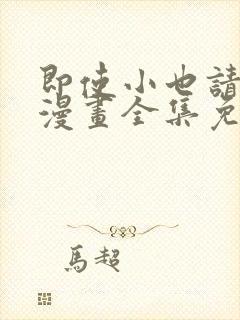 即使小也請
漫畫全集免
馬超